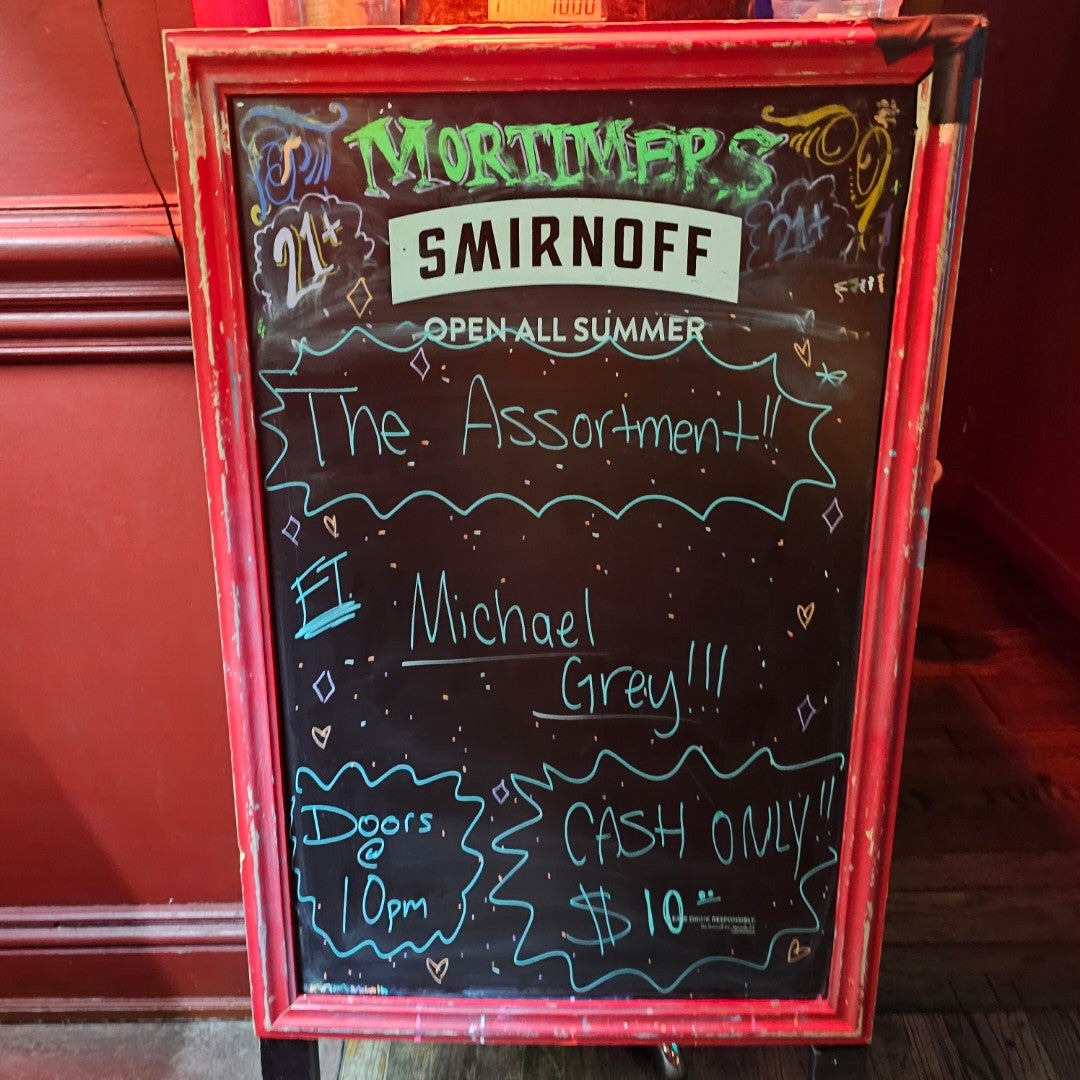 MORTIMERS
21+
21+
SMIRNOFF
OPEN ALL SUMMER
The Assortment!!
FT.
Michael
Grey!!!
Doors
@
10pm
CASH ONLY!!
$10.00
DRINK RESPONSIBLY.